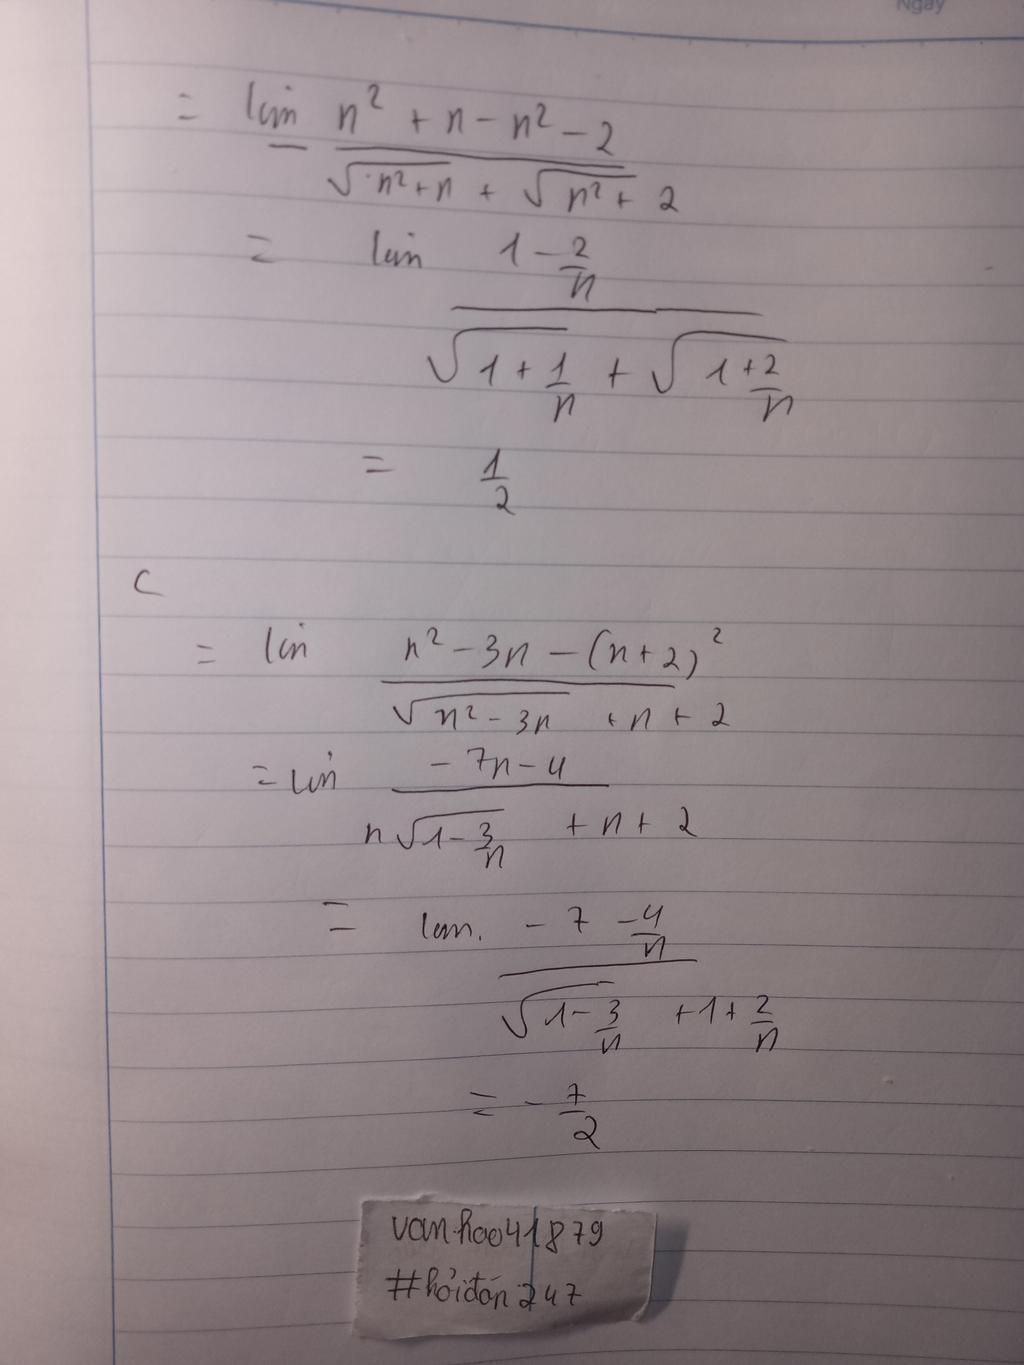 Ngày
= lim (n² + n - n² - 2) / (√(n²+n) + √(n²+ 2))
= lim (1 - 2/n) / (√(1 + 1/n) + √(1 + 2/n))
= 1/2
C
= lim (n² - 3n - (n+2)²) / (√(n² - 3n) + n + 2)
= lim (-7n - 4) / (n√(1 - 3/n) + n + 2)
= lim. (-7 - 4/n) / (√(1 - 3/n) + 1 + 2/n)
= -7/2
vanhao41879
#hỏiđáp247